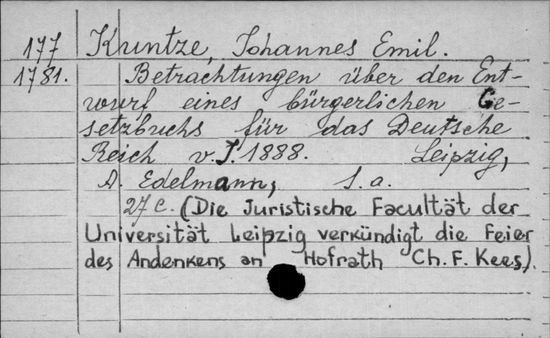 177 Kuntze, Johannes Emil.
1781. Betrachtungen über den Ent-
wurf eines bürgerlichen Ge-
setzbuchs für das Deutsche
Reich v. J. 1888. Leipzig,
A. Edelmann, s.a.
27 c. (Die Juristische Facultät der
Universität Leipzig verkündigt die Feier
des Andenkens an Hofrath Ch. F. Kees).